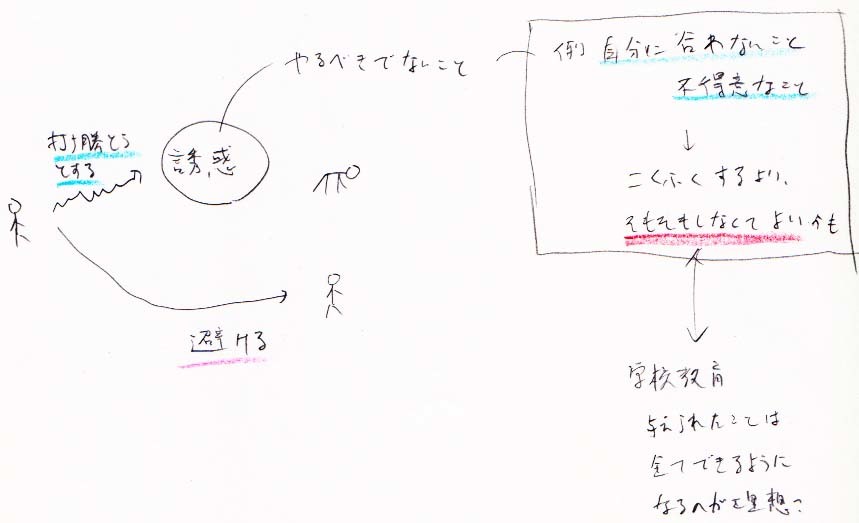 やるべきでないこと
例) 自分に合わないこと
不得意なこと
↓
こくふくするより、
そもそもしなくてよいかも
打ち勝とう
とする
誘惑
避ける
学校教育
与えられたことは
全てできるように
なるのが理想?